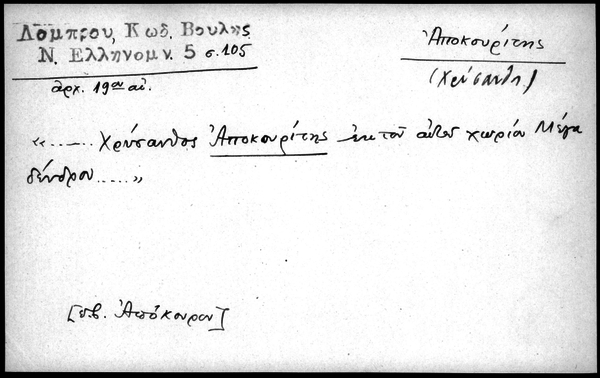 Λάμπρου, Κωδ. Βουλῆς
Ν. Ἑλληνομν. 5 σ. 105
ἀρχ. 19ου αἰ.
Ἀποκουρίτης
(Χρύσανθ)
«...... Χρύσανθος Ἀποκουρίτης ἐκ τοῦ αὐτοῦ χωρίου Μέγα
δένδρου.....»
[πβ. Ἀπόκουρον]